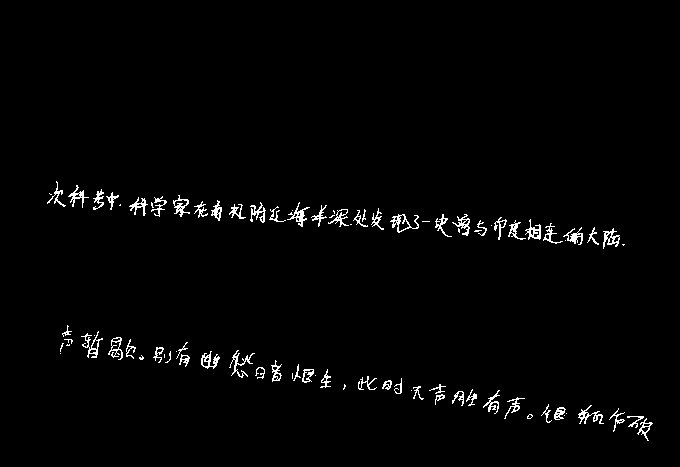 次科考中,科学家在南极附近海洋深处发现了一块曾与印度相连的大陆.
声暂歇。别有幽愁暗恨生,此时无声胜有声。银瓶乍破